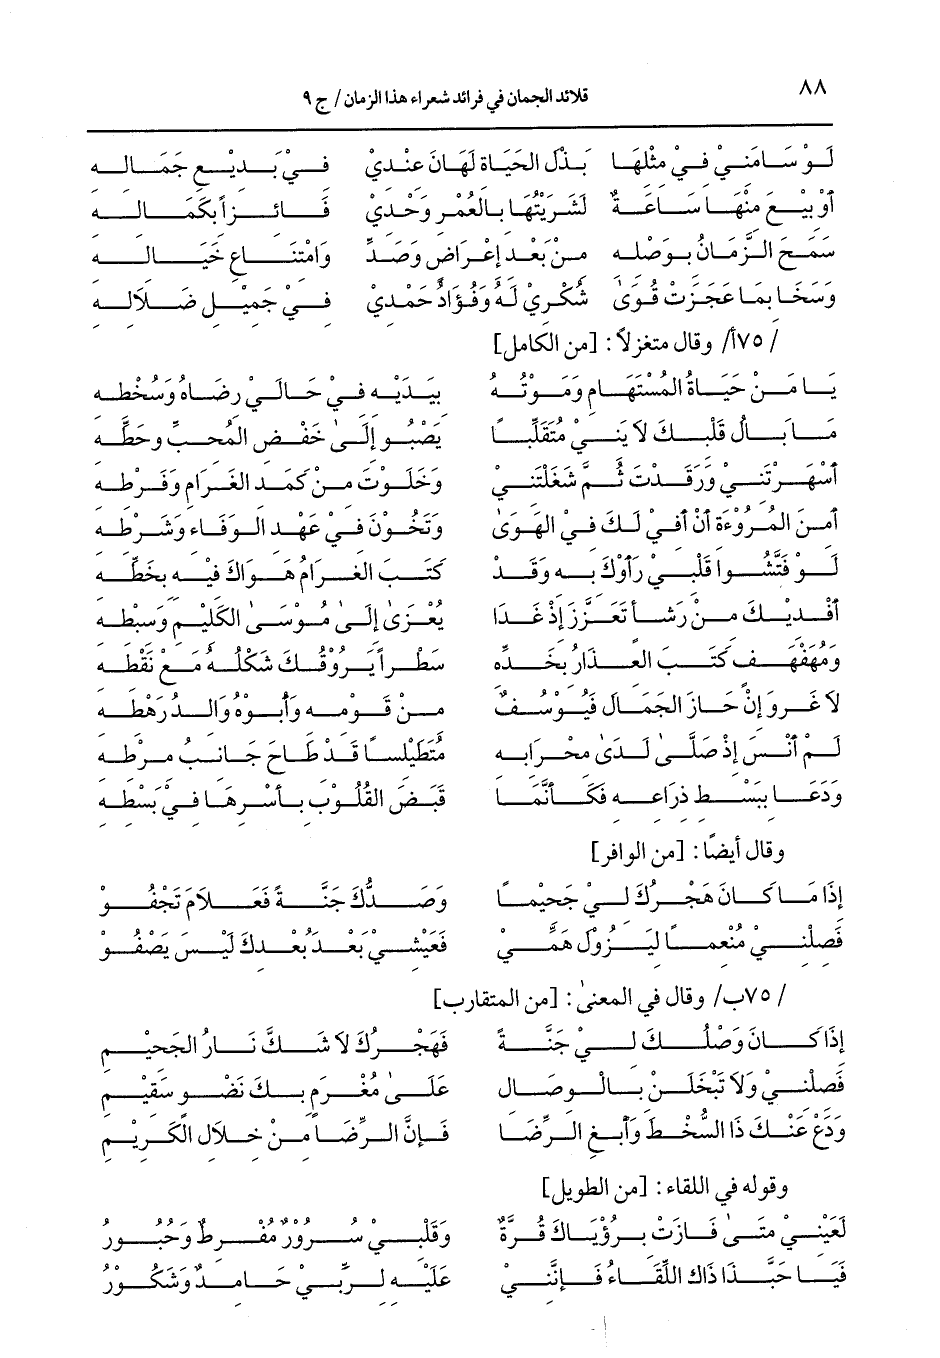 ٨٨
قلائد الجمان في فرائد شعراء هذا الزمان / ج ٩
لَوْ سَامَنيْ فيْ مثْلهَا بَذْلَ الحَيَاة لَهَانَ عنْديْ فيْ بَديْع جَمَاله
أَوْ بيْعَ منْهَا سَاعَةٌ لَشَرَيْتُهَا بالعُمْر وَحْديْ فَائزاً بكَمَاله
سَمَحَ الزَّمَانُ بوَصْله منْ بَعْد إعْرَاض وَصَدٍّ وَامْتنَاع خَيَاله
وَسَخَا بمَا عَجَزَتْ قُوَىٰ شُكْري لَهُ وَفُؤَادُ حَمْدي في جَميْل ضَلَاله
/ ٧٥أ/ وقال متغزلاً: [من الكامل]
يَا مَنْ حَيَاةُ المُسْتَهَام وَمَوْتُهُ بيَدَيْه فيْ حَالَيْ رضَاهُ وَسُخْطه
مَا بَالُ قَلْبكَ لاَ يَنيْ مُتَقَلِّبًا يَصْبُو إلَىٰ خَفْض المُحبِّ وَحَطِّه
أَسْهَرْتَنيْ وَرَقَدْتَ ثُمَّ شَغَلْتَنيْ وَخَلَوْتَ منْ كَمَد الغَرَام وَفَرْطه
أَمنَ المُرُوْءَة أَنْ أَفيْ لَكَ في الهَوَىٰ وَتَخُوْنَ فيْ عَهْد الوَفَاء وَشَرْطه
لَوْ فَتَّشُوا قَلْبيْ رَأَوْكَ به وَقَدْ كَتَبَ الغَرَامُ هَوَاكَ فيْه بخَطِّه
أَفْديْكَ منْ رَشَأ تَعَزَّزَ إذْ غَدَا يُعْزَىٰ إلَىٰ مُوْسَى الكَليْم وَسبْطه
وَمُهَفْهَف كَتَبَ العذَارُ بخَدِّه سَطْراً يَرُوْقُكَ شَكْلُهُ مَعْ نَقْطه
لاَ غَرْوَ إنْ حَازَ الجَمَالَ فَيُوْسُفٌ منْ قَوْمه وَأَبُوْهُ وَالدُ رَهْطه
لَمْ أَنْسَ إذْ صَلَّىٰ لَدَىٰ محْرَابه مُتَطَيْلسًا قَدْ طَاحَ جَانبُ مرْطه
وَدَعَا ببَسْط ذرَاعه فَكَأَنَّمَا قَبَضَ القُلُوْبَ بأَسْرهَا فيْ بَسْطه
وقال أيضًا: [من الوافر]
إذَا مَا كَانَ هَجْرُكَ ليْ جَحيْمًا وَصَدُّكَ جَنَّةً فَعَلاَمَ تَجْفُوْ
فَصلْنيْ مُنْعمًا ليَزُوْلَ هَمِّيْ فَعَيْشيْ بَعْدَ بُعْدكَ لَيْسَ يَصْفُوْ
/ ٧٥ب/ وقال في المعنىٰ: [من المتقارب]
إذَا كَانَ وَصْلُكَ ليْ جَنَّةً فَهَجْرُكَ لاَ شَكَّ نَارُ الجَحيْم
فَصلْنيْ وَلاَ تَبْخَلَنْ بالوصَال عَلَىٰ مُغْرَم بكَ نَضْو سَقيْم
وَدَعْ عَنْكَ ذَا السُّخْطَ وَأبغ الرِّضَا فَإنَّ الرِّضَا منْ خلاَل الكَريْم
وقوله في اللقاء: [من الطويل]
لَعَيْنيْ مَتَىٰ فَازَتْ برُؤْيَاكَ قُرَّةٌ وَقَلْبيْ سُرُوْرٌ مُفْرطٌ وَحُبُوْرُ
فَيَا حَبَّذَا ذَاكَ اللِّقَاءُ فَإنَّنيْ عَلَيْه لرَبِّيْ حَامدٌ وَشَكُوْرُ